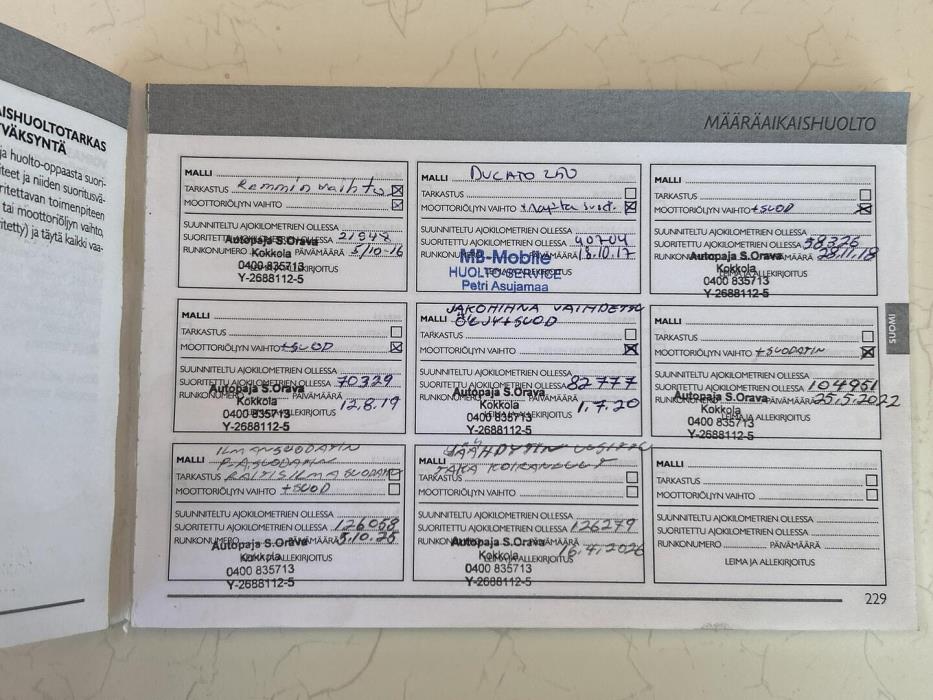 AISHUOLTOTARKAS
VÄKSYNTÄ
ja huolto-oppaasta suori-
iteet ja niiden suoritusvä-
ritettavan toimenpiteen
tai moottoriöljyn vaihto,
ritetty) ja täytä kaikki vaa-
MÄÄRÄAIKAISHUOLTO
MALLI
TARKASTUS Remmin vaihto
MOOTTORIÖLJYN VAIHTO
SUUNNITELTU AJOKILOMETRIEN OLLESSA
SUORITETTU AJOKILOMETRIEN OLLESSA 21948
RUNKONUMERO PÄIVÄMÄÄRÄ 5/10-16
LEIMA JA ALLEKIRJOITUS
Autopaja S.Orava
Kokkola
0400 835713
Y-2688112-5
MALLI DUCATO 250
TARKASTUS
MOOTTORIÖLJYN VAIHTO
SUUNNITELTU AJOKILOMETRIEN OLLESSA
SUORITETTU AJOKILOMETRIEN OLLESSA 40704
RUNKONUMERO PÄIVÄMÄÄRÄ 18.10.17
LEIMA JA ALLEKIRJOITUS
MB-Mobile
HUOLTO-SERVICE
Petri Asujamaa
MALLI
TARKASTUS
MOOTTORIÖLJYN VAIHTO +SUOD
SUUNNITELTU AJOKILOMETRIEN OLLESSA
SUORITETTU AJOKILOMETRIEN OLLESSA 58326
RUNKONUMERO PÄIVÄMÄÄRÄ 28.11.18
LEIMA JA ALLEKIRJOITUS
Autopaja S.Orava
Kokkola
0400 835713
Y-2688112-5
MALLI
TARKASTUS
MOOTTORIÖLJYN VAIHTO +SUOD
SUUNNITELTU AJOKILOMETRIEN OLLESSA
SUORITETTU AJOKILOMETRIEN OLLESSA 70329
RUNKONUMERO PÄIVÄMÄÄRÄ 12.8.19
LEIMA JA ALLEKIRJOITUS
Autopaja S.Orava
Kokkola
0400 835713
Y-2688112-5
JAKOHIHNA VAIHDETTU
MALLI ÖLJY+SUOD
TARKASTUS
MOOTTORIÖLJYN VAIHTO
SUUNNITELTU AJOKILOMETRIEN OLLESSA
SUORITETTU AJOKILOMETRIEN OLLESSA 82777
RUNKONUMERO PÄIVÄMÄÄRÄ 1.7.20
LEIMA JA ALLEKIRJOITUS
Autopaja S.Orava
Kokkola
0400 835713
Y-2688112-5
MALLI
TARKASTUS
MOOTTORIÖLJYN VAIHTO +SUODATIN
SUUNNITELTU AJOKILOMETRIEN OLLESSA
SUORITETTU AJOKILOMETRIEN OLLESSA 104951
RUNKONUMERO PÄIVÄMÄÄRÄ 25.5.2022
LEIMA JA ALLEKIRJOITUS
Autopaja S.Orava
Kokkola
0400 835713
Y-2688112-5
SUOMI
ILMANSUODATIN
MALLI P.A.SUODATIN
TARKASTUS RAITISILMASUODATIN
MOOTTORIÖLJYN VAIHTO +SUOD
SUUNNITELTU AJOKILOMETRIEN OLLESSA
SUORITETTU AJOKILOMETRIEN OLLESSA 126058
RUNKONUMERO PÄIVÄMÄÄRÄ 3.10.25
LEIMA JA ALLEKIRJOITUS
Autopaja S.Orava
Kokkola
0400 835713
Y-2688112-5
JÄÄHDYTIN UUSITTU
MALLI TAKA KOIRANLUUT
TARKASTUS
MOOTTORIÖLJYN VAIHTO
SUUNNITELTU AJOKILOMETRIEN OLLESSA
SUORITETTU AJOKILOMETRIEN OLLESSA 126279
RUNKONUMERO PÄIVÄMÄÄRÄ 16.4.2026
LEIMA JA ALLEKIRJOITUS
Autopaja S.Orava
Kokkola
0400 835713
Y-2688112-5
MALLI
TARKASTUS
MOOTTORIÖLJYN VAIHTO
SUUNNITELTU AJOKILOMETRIEN OLLESSA
SUORITETTU AJOKILOMETRIEN OLLESSA
RUNKONUMERO PÄIVÄMÄÄRÄ
LEIMA JA ALLEKIRJOITUS
229